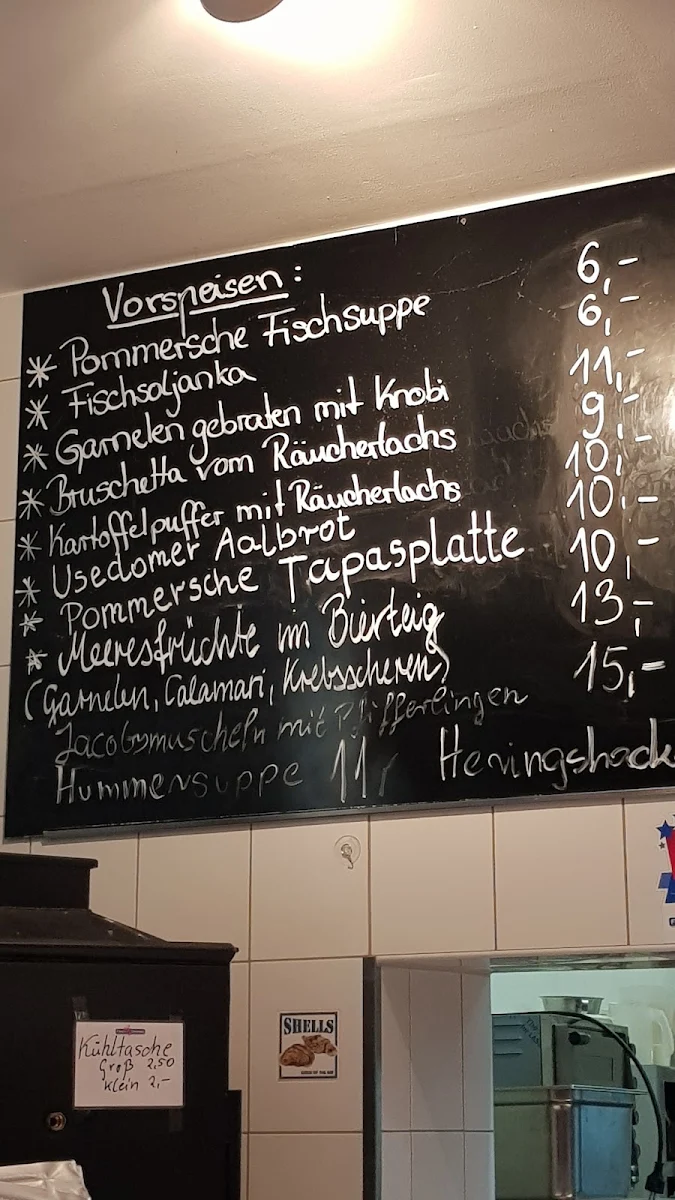 Vorspeisen:
* Pommersche Fischsuppe 6,-
* Fischsoljanka 6,-
* Garnelen gebraten mit Knobi 11,-
* Bruschetta vom Räucherlachs 9,-
* Kartoffelpuffer mit Räucherlachs 10,-
* Usedomer Aalbrot 10,-
* Pommersche Tapasplatte 10,-
* Meeresfrüchte im Bierteig 13,-
(Garnelen, Calamari, Krebsscheren)
Jacobsmuscheln mit Pfifferlingen 15,-
Hummersuppe 11,- Heringshack
Kühltasche
Groß 2,50
klein 2,-
SHELLS